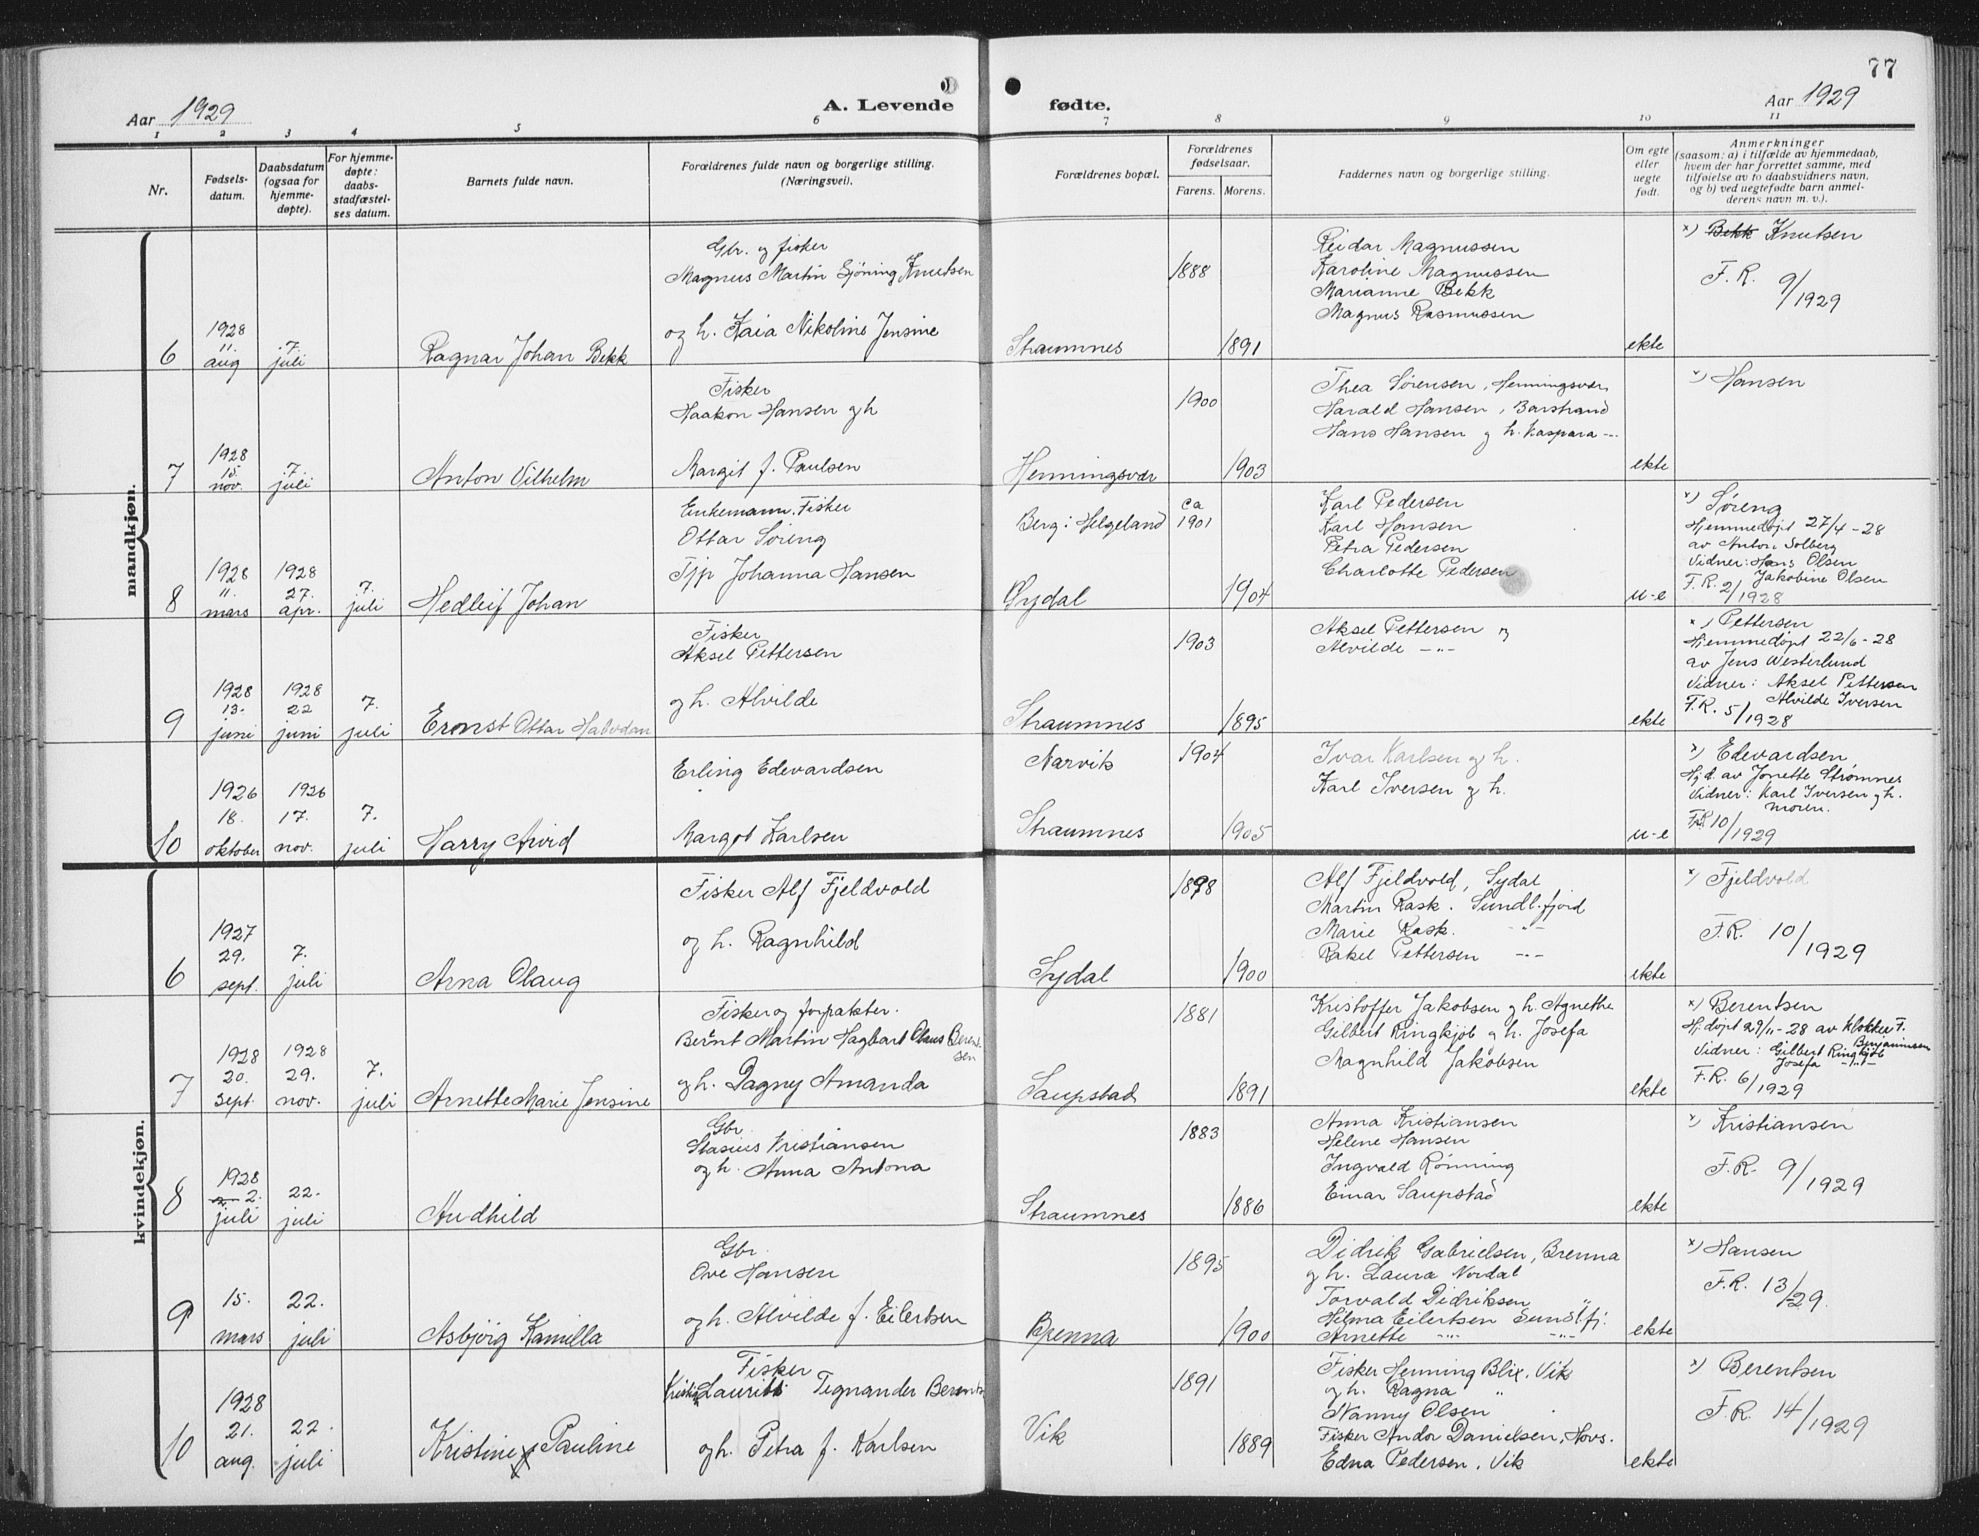 77
Aar 1929
A. Levende fødte.
Aar 1929
1 2 3 4 5 6 7 8 9 10 11
Nr.
Fødsels-
datum.
Daabsdatum
(ogsaa for
hjemme-
døpte).
For hjemme-
døpte:
daabs-
stadfæstel-
ses datum.
Barnets fulde navn.
Forældrenes fulde navn og borgerlige stilling.
(Næringsvei).
Forældrenes bopæl.
Forældrenes
fødselsaar.
Farens. Morens.
Faddernes navn og borgerlige stilling.
Om egte
eller
uegte
født.
Anmerkninger
(saasom: a) i tilfælde av hjemmedaab,
hvem der har forrettet samme, med
tilføielse av to daabsvidners navn,
og b) ved uegtefødte barn anmel-
derens navn m. v.).
mandkjøn.
6
1928
11.
aug
7.
juli
Ragnar Johan Bekk
Gbr. og fisker
Magnus Martin Sjöning Knutsen
og h. Kaia Nikoline Jensine
Straumnes
1888
1891
Reidar Magnussen
Karoline Magnussen
Marianne Bekk
Magnus Rasmussen
ekte
x) Bekk Knutsen
F. R. 9/1929
7
1928
15.
nov.
7.
juli
Anton Vilhelm
Fisker
Haakon Hansen og h
Margit f. Paulsen
Henningsvær
1900
1903
Thea Sørensen, Henningsvær
Harald Hansen, Barstrand
Hans Hansen og h. Kaspara -"-
ekte
x) Hansen
8
1928
11.
mars
1928
27.
apr.
7.
juli
Hedleif Johan
Enkemann. Fisker
Ottar Söreng
Tjp Johanna Hansen
Berg i Helgeland
Sydal
ca
1901
1904
Karl Pedersen
Karl Hansen
Petra Pedersen
Charlotte Pedersen
u-e
x) Søreng
Hjemmedøpt 27/4-28
av Anton Solberg
Vidner: Hans Olsen
Jakobine Olsen
F. R. 2/1928
9
1928
13.
juni
1928
22
juni
7.
juli
Ernst Ottar Halvdan
Fisker
Aksel Pettersen
og h. Alvilde
Straumnes
1903
1895
Aksel Pettersen og
Alvilde -"-
ekte
x) Pettersen
Hjemmedøpt 22/6-28
av Jens Westerlund
Vidner: Aksel Pettersen
Alvilde Iversen
F. R. 5/1928
10
1926
18.
oktober
1926
17.
nov.
7.
juli
Harry Arvid
Erling Edevardsen
Margot Karlsen
Narvik
Straumnes
1904
1905
Ivar Karlsen og h.
Karl Iversen og h.
u-e
x) Edevardsen
Hjd. av Jonette Strømnes
Vidner: Karl Iversen og h.
moren.
F.R. 10/1929
kvindekjøn.
6
1927
29.
sept.
7.
juli
Arna Olaug
Fisker Alf Fjeldvold
og h. Ragnhild
Sydal
1898
1900
Alf Fjeldvold, Sydal
Martin Rask. Sundl.fjord
Marie Rask. -"-
Rakel Pettersen -"-
ekte
x) Fjeldvold
F.R. 10/1929
7
1928
20.
sept.
1928
29.
nov.
7.
juli
Arnette Marie Jensine
Fisker og forpakter.
Bernt Martin Hagbart Olaus Berent-
sen
og h. Dagny Amanda
Saupstad
1881
1891
Kristoffer Jakobsen og h. Agnethe
Gilbert Ringkjöb og h. Josefa
Magnhild Jakobsen
ekte
x) Berentsen
Hj.døpt 29/11-28 av klokker F.
Benjaminsen
Vidner: Gilbert Ringkjöb
Josefa -"-
F. R. 6/1929
8
1928
2.
juli
22.
juli
Audhild
Gbr.
Stasius Kristiansen
og h. Anna Antona
Straumnes
1883
1886
Anna Kristiansen
Helene Hansen
Ingvald Rønning
Einar Saupstad
ekte
x) Kristiansen
F.R. 9/1929
9
15.
mars
22.
juli
Asbjörg Kamilla
Gbr.
Ove Hansen
og h. Alvilde f. Eilertsen
Brenna
1895
1900
Didrik Gabrielsen, Brenna
og h. Laura Nordal
Torvald Didriksen "
Helma Eilertsen Sundl.fj.
Arnette -"- -"-
ekte
x) Hansen
F. R. 13/29.
10
1928
21.
aug.
22.
juli
Kristine Pauline
Fisker
Lauritz Tegnander Berents
og h. Petra f. Karlsen
Vik
1891
1889
Fisker Henning Blix, Vik
og h. Ragna "
Nanny Olsen
Fisker Andor Danielsen, Hovs.
Edna Pedersen, Vik
ekte
x) Berentsen
F. R. 14/1929